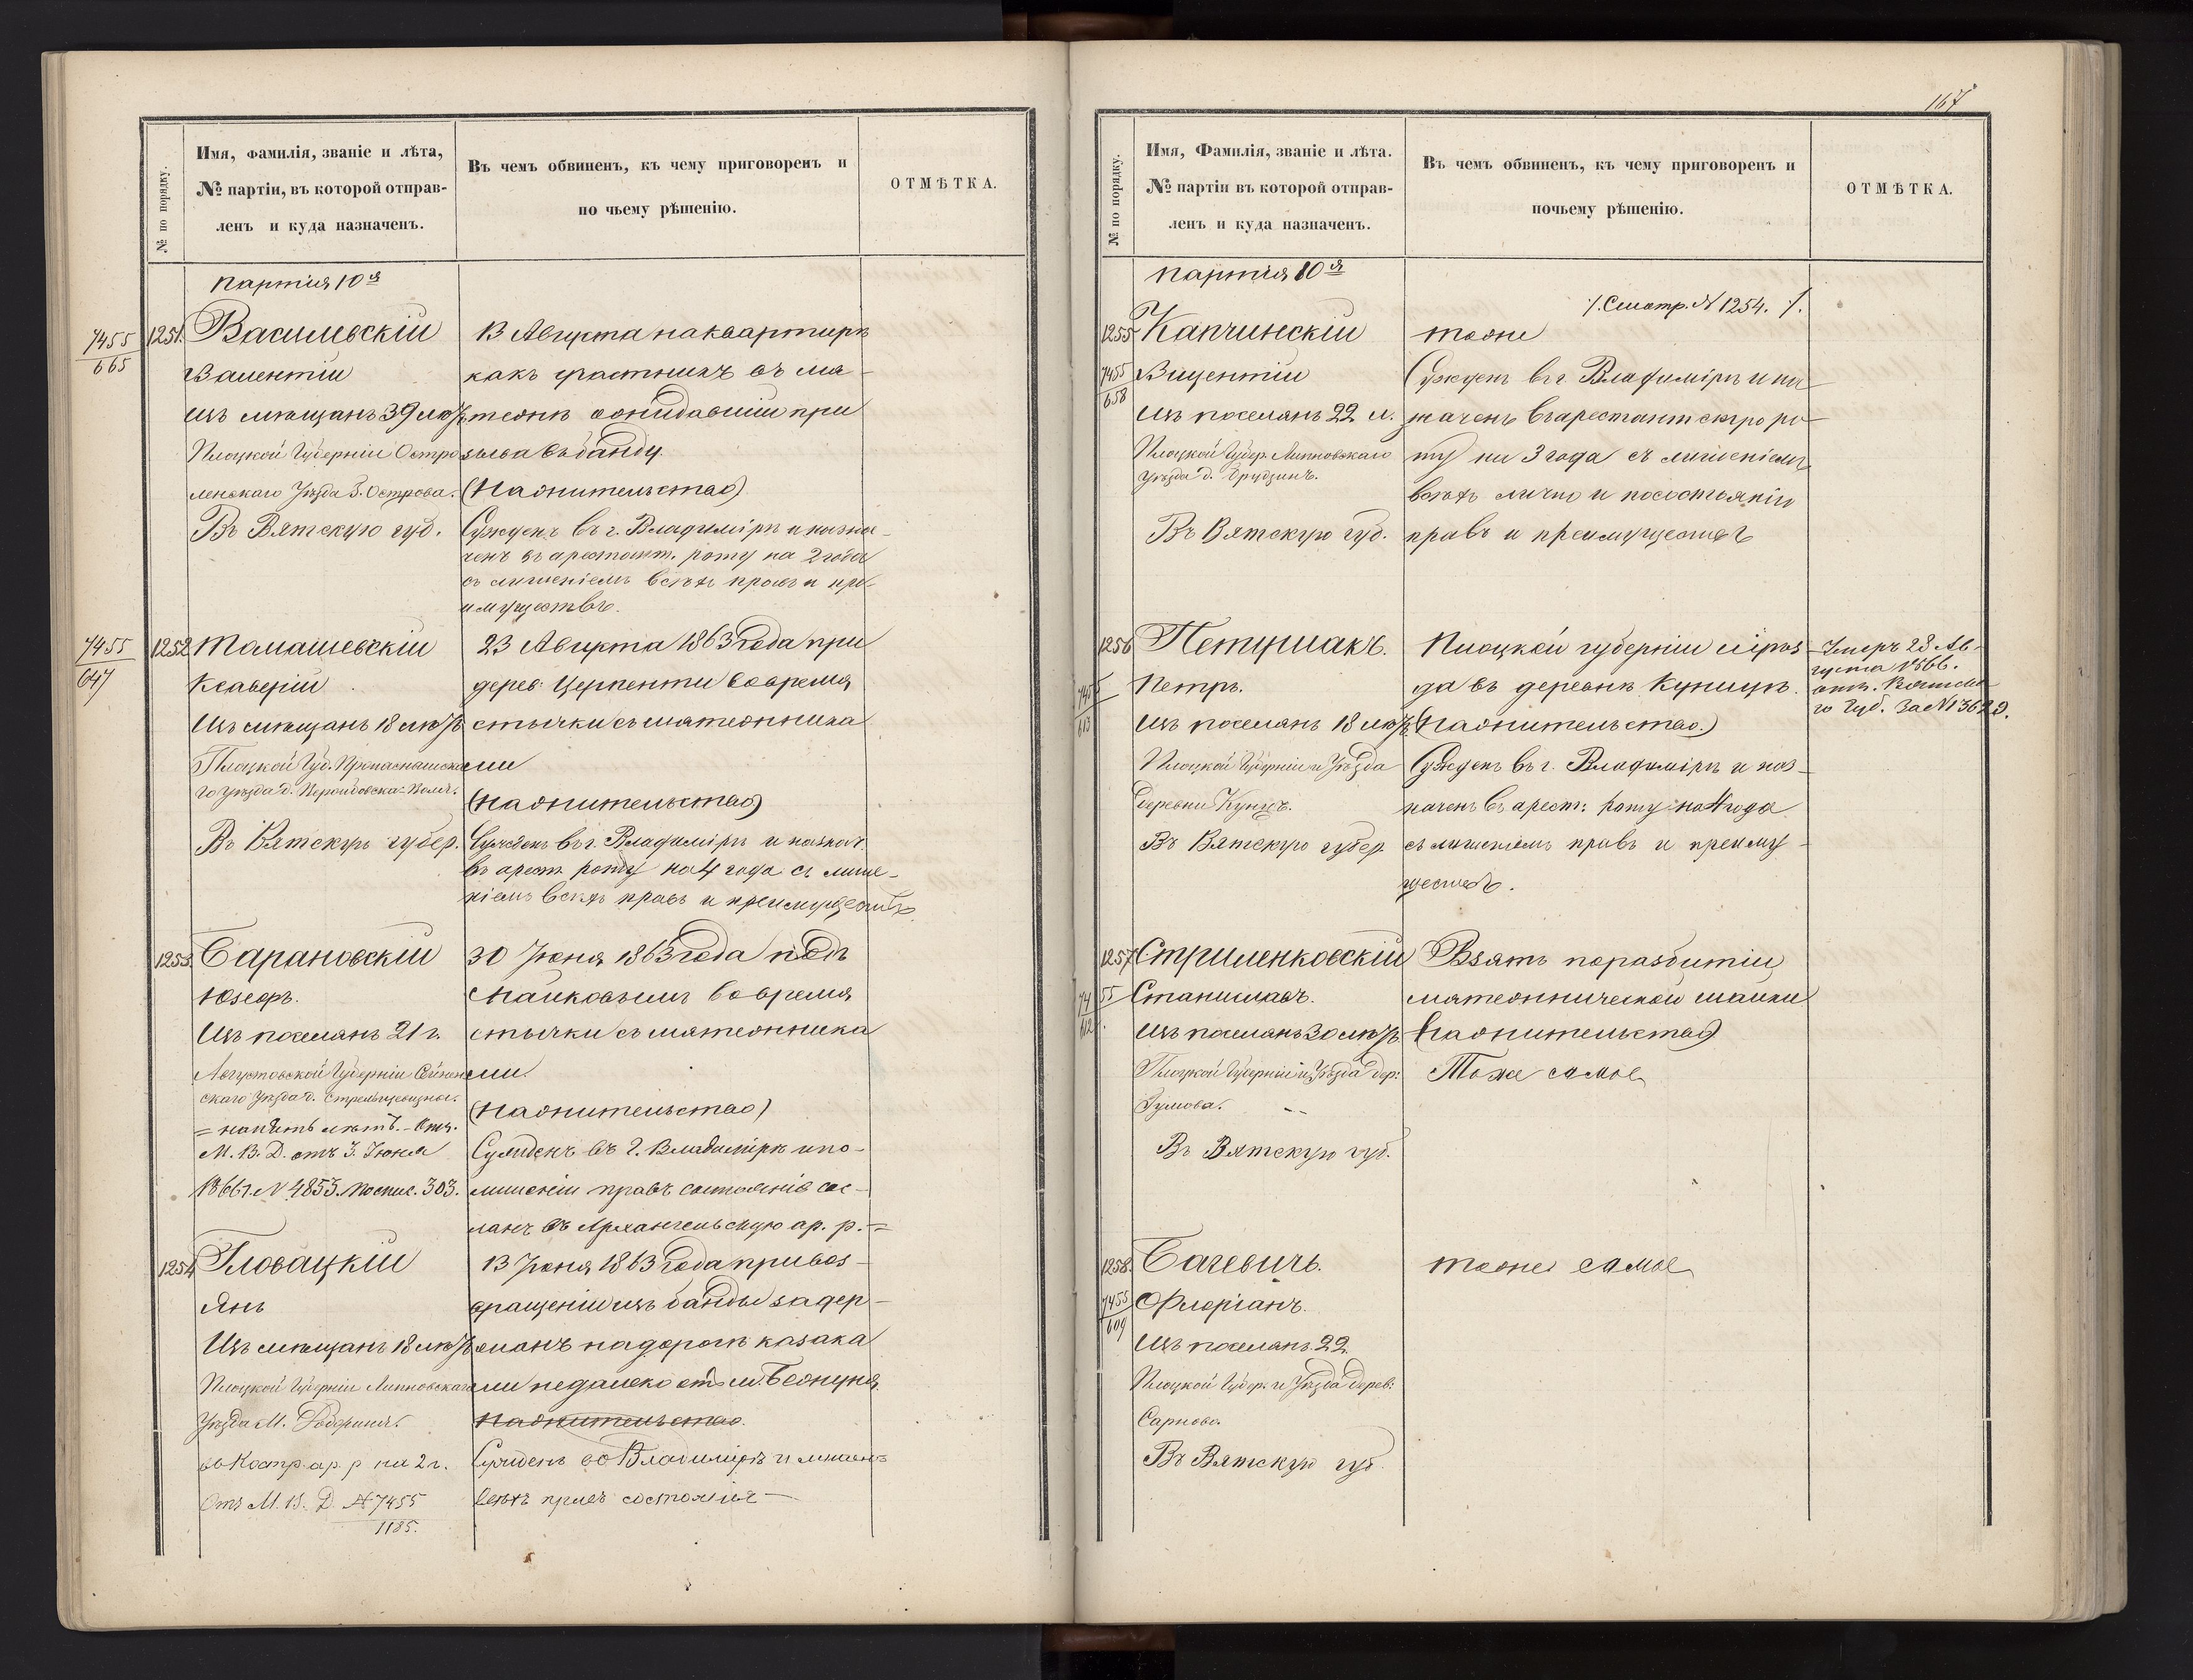 № по порядку.
Имя, фамилія, званіе и лѣта,
№ партіи, въ которой отправ-
ленъ и куда назначенъ.
Въ чемъ обвиненъ, къ чему приговоренъ и
по чьему рѣшенію.
ОТМѢТКА.
партія 10я
7455
665
1251.
Василевскій
Валентій
Изъ мѣщанъ 39 лѣтъ
Плоцкой Губерніи Остро
ленскаго Уѣзда
Въ Вятскую губ.
13 Августа на квартирѣ
какъ участникъ въ мя-
тежѣ ожидавшій при
зыва въ банду.
(На жительство)
Сужденъ въ г. Владимірѣ и назна-
ченъ въ арестант. роту на 2 года
съ лишеніемъ всѣхъ правъ и пре-
имуществъ.
7455
647
1252
Томашевскій
Ксаверій
Изъ мѣщанъ 18 лѣтъ
Плоцкой Губ.
го уѣзда д.
Въ Вятскую губер.
23 Августа 1863 года при
дерев. Церпенти во время
стычки съ мятежника
ми
(на жительство)
Сужденъ въ г. Владимірѣ и назнач.
въ арест. роту на 4 года съ лише-
ніемъ всѣхъ правъ и преимуществъ
1253.
Барановскій
Юзефъ.
Изъ поселянъ 21 г.
Августовской Губерніи Сейнен
скаго Уѣзда д.
= на пять лѣтъ. - Отн.
М. В. Д. отъ 3. Іюня
1866 г. № 4853. по спис. 303.
30 Іюня 1863 года подъ
во время
стычки съ мятежника
ми.
(На жительство)
Сужденъ въ г. Владимірѣ и по-
лишеніи правъ состоянія сос-
ланъ въ Архангельскую ар. р. =
1254
Гловацкій
Янъ
Изъ мѣщанъ 18 лѣтъ
Плоцкой Губерніи Липновскаго
Уѣзда М.
въ Костр. ар. р на 2 г.
Отъ М. В. Д. № 7455
1185.
13 Іюня 1863 года при воз-
вращеніи изъ банды задер-
жанъ на дорогѣ козака
ми недалеко отъ м. Бежуня
На жительство.
Сужденъ во Владимірѣ и лишенъ
всѣхъ правъ состоянія —
167
№ по порядку.
Имя, Фамилія, званіе и лѣта.
№ партіи въ которой отправ-
ленъ и куда назначенъ.
Въ чемъ обвиненъ, къ чему приговоренъ и
почьему рѣшенію.
ОТМѢТКА.
партія 10я
/. Смотр. № 1254. /.
1255
7455
658
Капчинскій
Вицентій
Изъ поселянъ 22 л.
Плоцкой Губер. Липновскаго
уѣзда д.
Въ Вятскую губ.
тоже
Сужденъ въ г. Владимірѣ и на
значенъ въ арестантскую ро-
ту на 3 года съ лишеніемъ
всѣхъ лично и по состоянію
правъ и преимуществъ
1256
7455
613
Петшакъ.
Петръ.
Изъ поселянъ 18 лѣтъ
Плоцкой Губерніи и Уѣзда
деревни
Въ Вятскую губер
Плоцкой губерніи и уѣз
да въ деревнѣ
(На жительство.)
Сужденъ въ г. Владимірѣ и наз-
наченъ въ арест: роту на 4 года
съ лишеніемъ правъ и преиму-
ществъ.
Умеръ 23 Ав-
густа 1866.
отн. Вятска
го Губ. За № 3629.
1257
7455
612
Стриленковскій
Станиславъ.
Изъ поселянъ 30 лѣтъ
Плоцкой Губерніи и Уѣзда дер:
Гумова.
Въ Вятскую губ.
Взятъ по разбитіи
мятежнической шайки
(на жительство)
Тоже самое
1258.
7455
609
Багевичъ.
Флоріанъ.
Изъ поселянъ 22
Плоцкой Губер. и Уѣзда дерев:
Сарново.
Въ Вятскую губ.
тоже самое